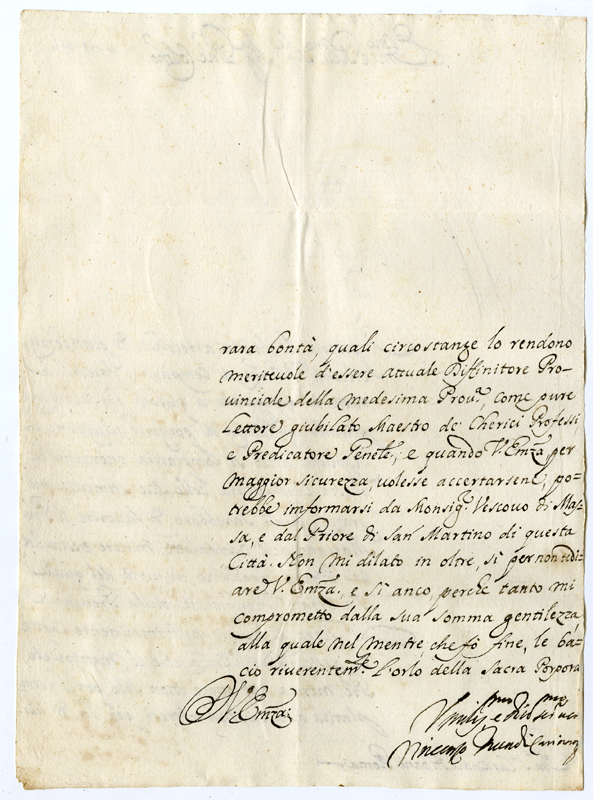 rara bontà, quali circostanze lo rendono
meritevole d'essere attuale Diffinitore Pro-
vinciale della medesima Prova, come pure
Lettore giubilato Maestro de' Cherici Professi
e Predicatore Genle, e quando V. Emza per
maggior sicurezza, volesse accertarsene, po-
trebbe informarsi da Monsigr Vescovo di Mas-
sa, e dal Priore di San Martino di questa
Città. Non mi dilato in oltre, sì per non tedi-
are V. Emza, e sì anco, perche tanto mi
comprometto dalla sua somma gentilezza,
alla quale nel mentre che fò fine, le ba-
cio riverentemte l'orlo della Sacra Porpora
D V. Emza
Vincenzo